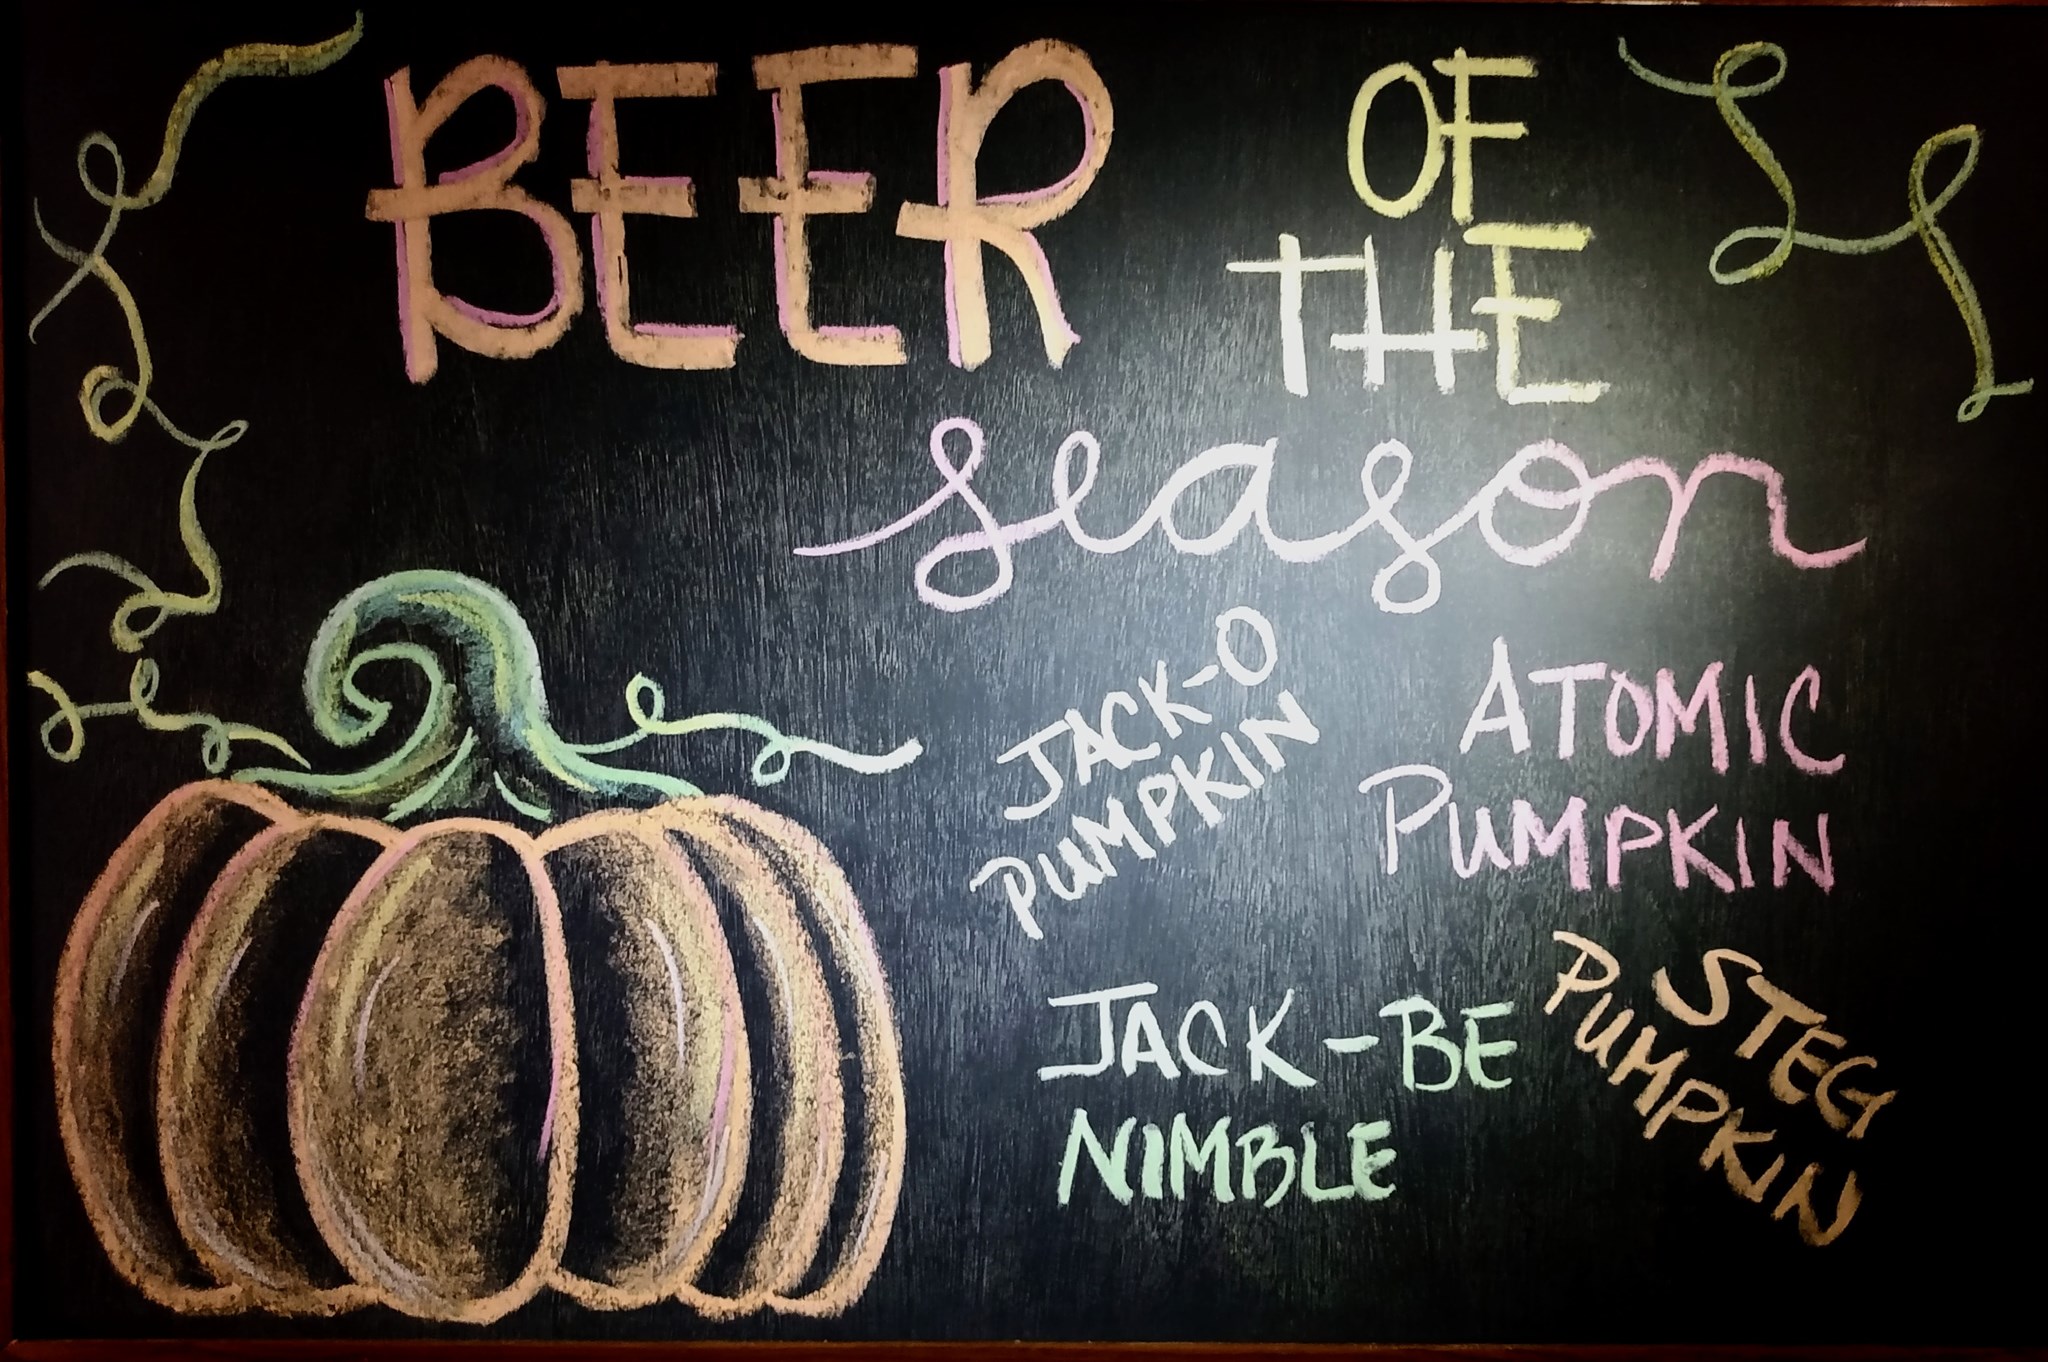 BEER
OF
THE
season
JACK-O
PUMPKIN
ATOMIC
PUMPKIN
JACK-BE
NIMBLE
STEG
PUMPKIN